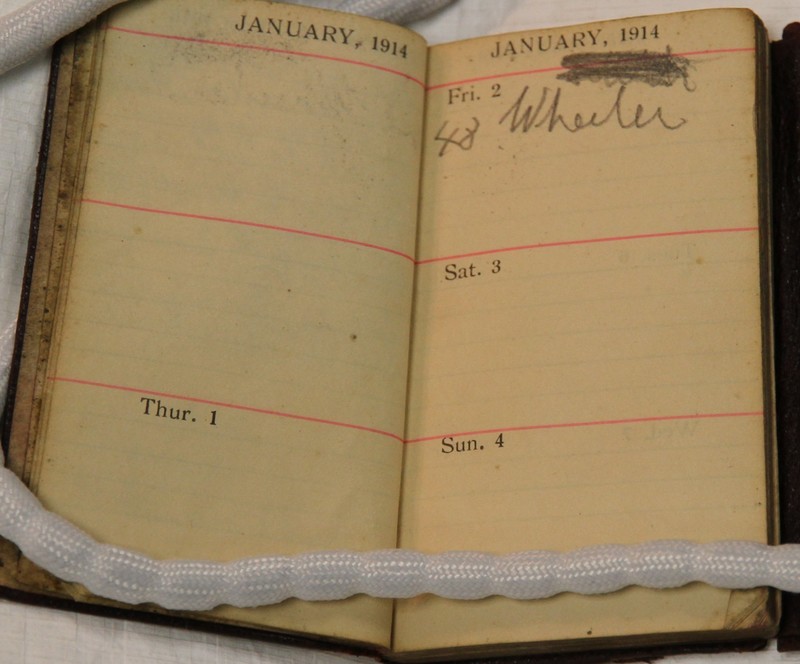 JANUARY, 1914
Thur. 1
JANUARY, 1914
Fri. 2
48 Wheeler
Sat. 3
Sun. 4